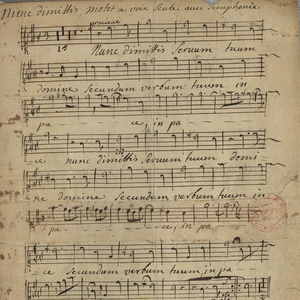 Nunc dimittis motet a voix seule avec simphonie
15
Nunc dimittis servum tuum
domine secundum verbum tuum in
pa ce, in pa
ce nunc dimittis servum tuum domi
ne domine secundum verbum tuum in
pa ce, in pa
ce secundum verbum tuum, in pa